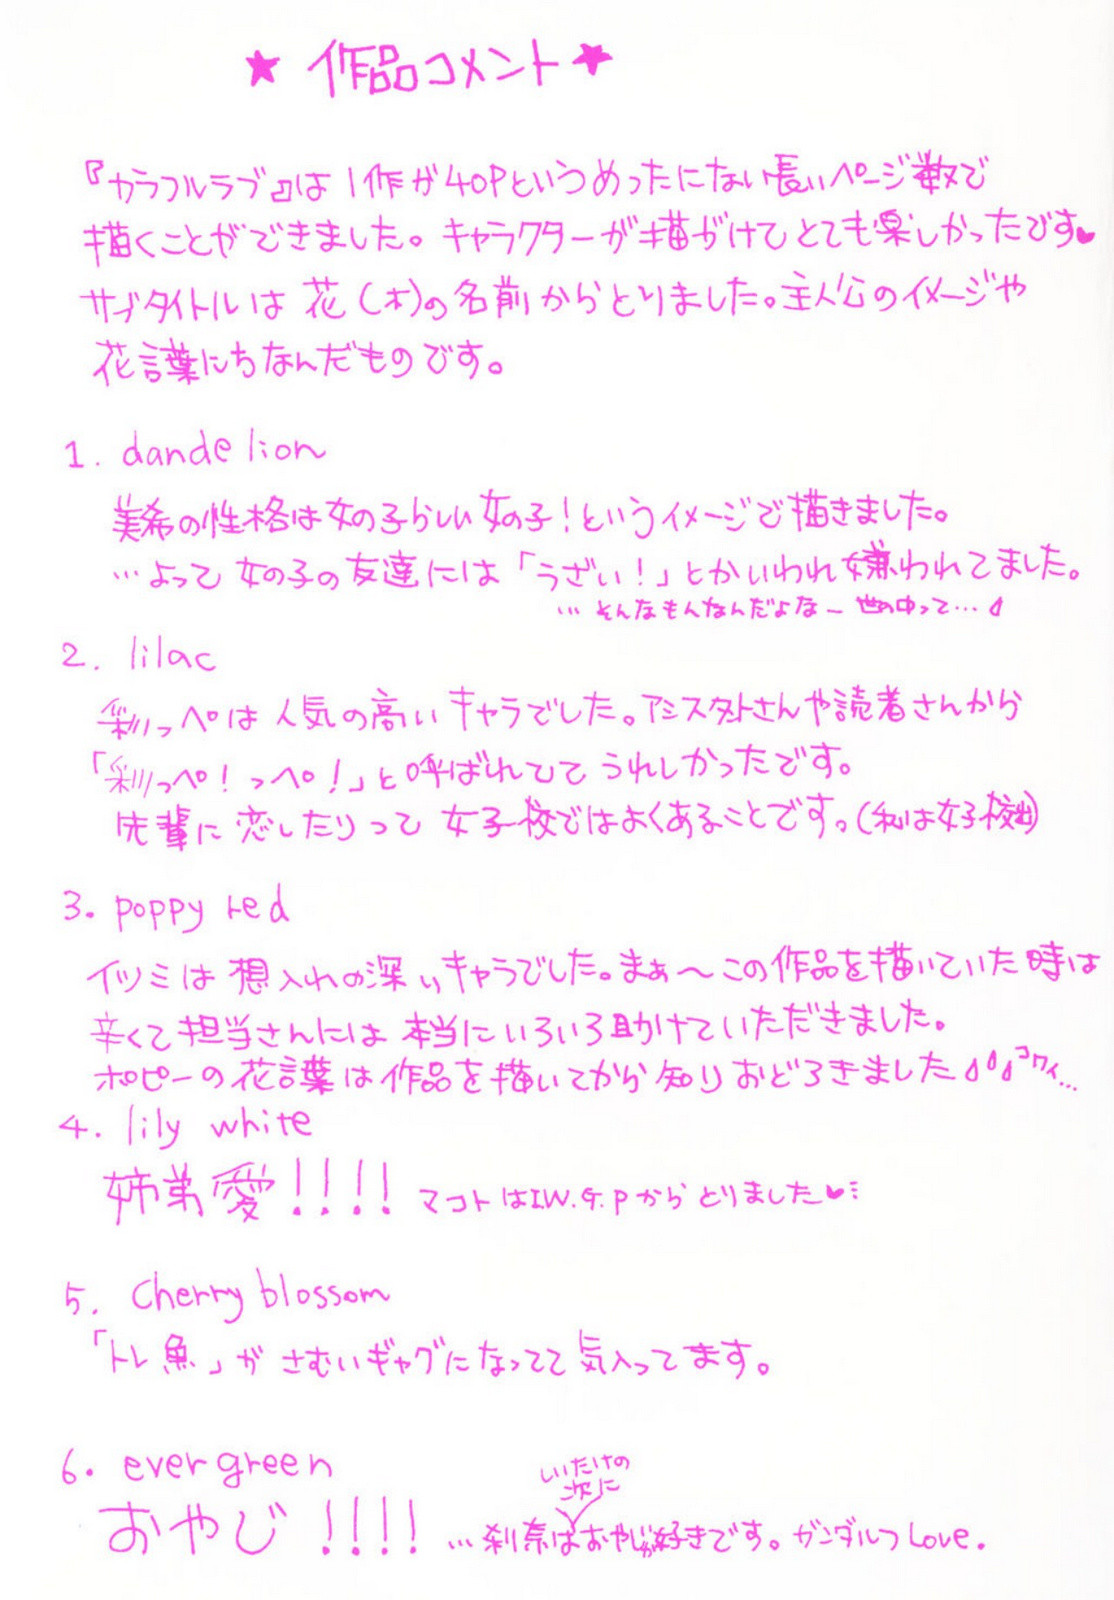 ★ 作品コメント ★
『カラフルラブ』は1作が40Pというめったにない長いページ数で
描くことができました。キャラクターが描がけてとても楽しかったです♥
サブタイトルは花(木)の名前からとりました。主人公のイメージや
花言葉にちなんだものです。
1. dandelion
美希の性格は女の子らしい女の子!というイメージで描きました。
…よって女の子の友達には「うざい!」とかいわれ嫌われてました。
…そんなもんなんだよなー世の中って…
2. lilac
彩っぺは人気の高いキャラでした。アシスタントさんや読者さんから
「彩っぺ!っぺ!」と呼ばれててうれしかったです。
先輩に恋したりって女子校ではよくあることです。(私は女子校出)
3. poppy red
イツミは想入れの深いキャラでした。まぁ〜この作品を描いていた時は
辛くて担当さんには本当にいろいろ助けていただきました。
ポピーの花言葉は作品を描いてから知りおどろきました コワイ…
4. lily white
姉弟愛!!!! マコトはI.W.G.Pからとりました♥
5. Cherry blossom
「トレ魚」がさむいギャグになってて気入ってます。
6. ever green
しいたけの
次に
おやじ!!!! …刹奈はおやじが好きです。ガンダルフLove.